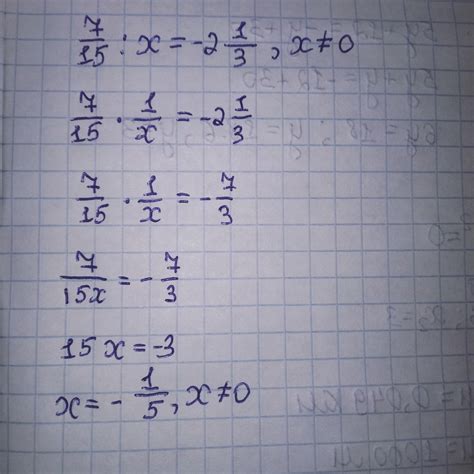 7/15 : x = -2 1/3, x ≠ 0
7/15 · 1/x = -2 1/3
7/15 · 1/x = -7/3
7/15x = -7/3
15x = -3
x = -1/5, x ≠ 0